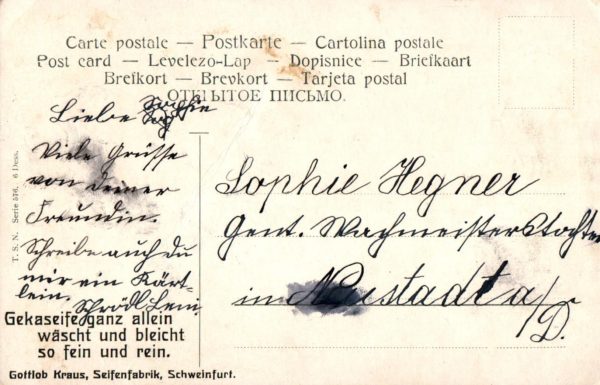 Carte postale — Postkarte — Cartolina postale
Post card — Levelezo-Lap — Dopisnice — Briefkaart
Brefkort — Brevkort — Tarjeta postal
ОТКРЫТОЕ ПИСЬМО.
Liebe Sophie
Viele Grüsse
von deiner
Freundin.
Schreibe auch du
mir ein Kärt-
lein.
Schrödl Leni
T. S. N. Serie 576. 6 Dess.
Gekaseife ganz allein
wäscht und bleicht
so fein und rein.
Gottlob Kraus, Seifenfabrik, Schweinfurt.
Sophie Hegner
Gent. Wachmeisterstochter
in Neustadt a/
D.